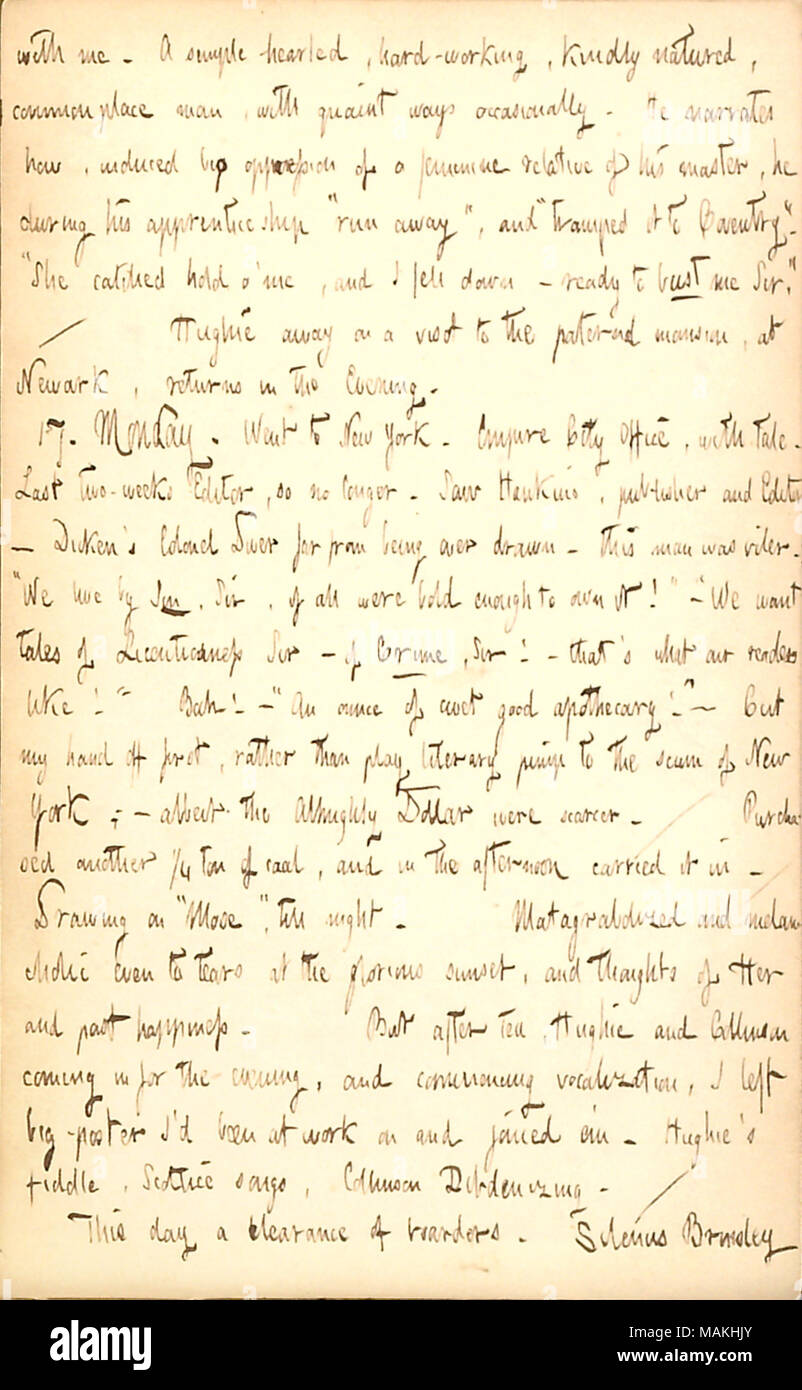 with me. A simple hearted, hard-working, kindly natured,
commonplace man, with quaint ways occasionally. He narrates
how, induced by oppression of a feminine relative of his master, he
during his apprenticeship "run away", and "tramped it to Coventry".
"She catched hold o' me, and I fell down — ready to bust me Sir."
Hughie away on a visit to the paternal mansion, at
Newark, returns in the Evening.
17. Monday. Went to New York. Empire City Office, with tale.
Last two-weeks Editor, so no longer. Saw Hankins, publisher and Editor
— Dicken's Colonel Diver far from being over drawn — this man was viler.
"We live by Sin, Sir, if all were bold enough to own it!" — "We want
tales of Licentiousness Sir — of Crime, Sir! — that's what our readers
like!" Bah! — "An ounce of civet good apothecary!" — Cut
my hand off first, rather than play literary pimp to the scum of New
York; — albeit the Almighty Dollar were scarcer. Purcha
sed another 1/4 ton of coal, and in the afternoon carried it in.
Drawing on "Mose", till night. Matagrabolized and melan
cholic even to tears at the glorious sunset, and thoughts of Her
and past happiness. But after tea, Hughie and Collinson
coming in for the evening, and commencing vocalization, I left
big-poster I'd been at work on and joined em. Hughie's
fiddle, Scottice songs, Collinson Dibdenizing.
This day a clearance of boarders. Silenus Brinsley
a
alamy
a
a
a
a
alamy
Image ID: MAKHJY
www.alamy.com